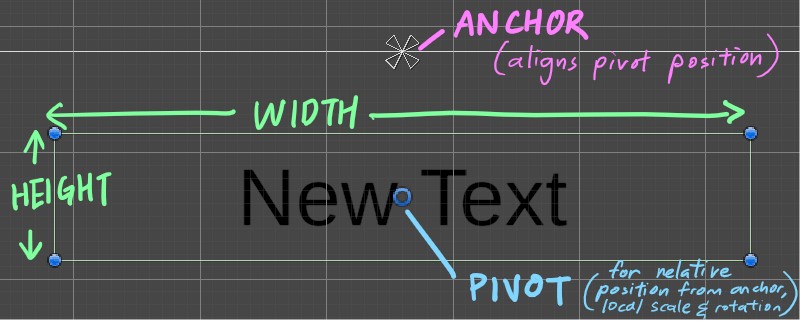 ANCHOR
(aligns pivot position)
WIDTH
HEIGHT
New Text
PIVOT (for relative
position from anchor,
local scale & rotation)